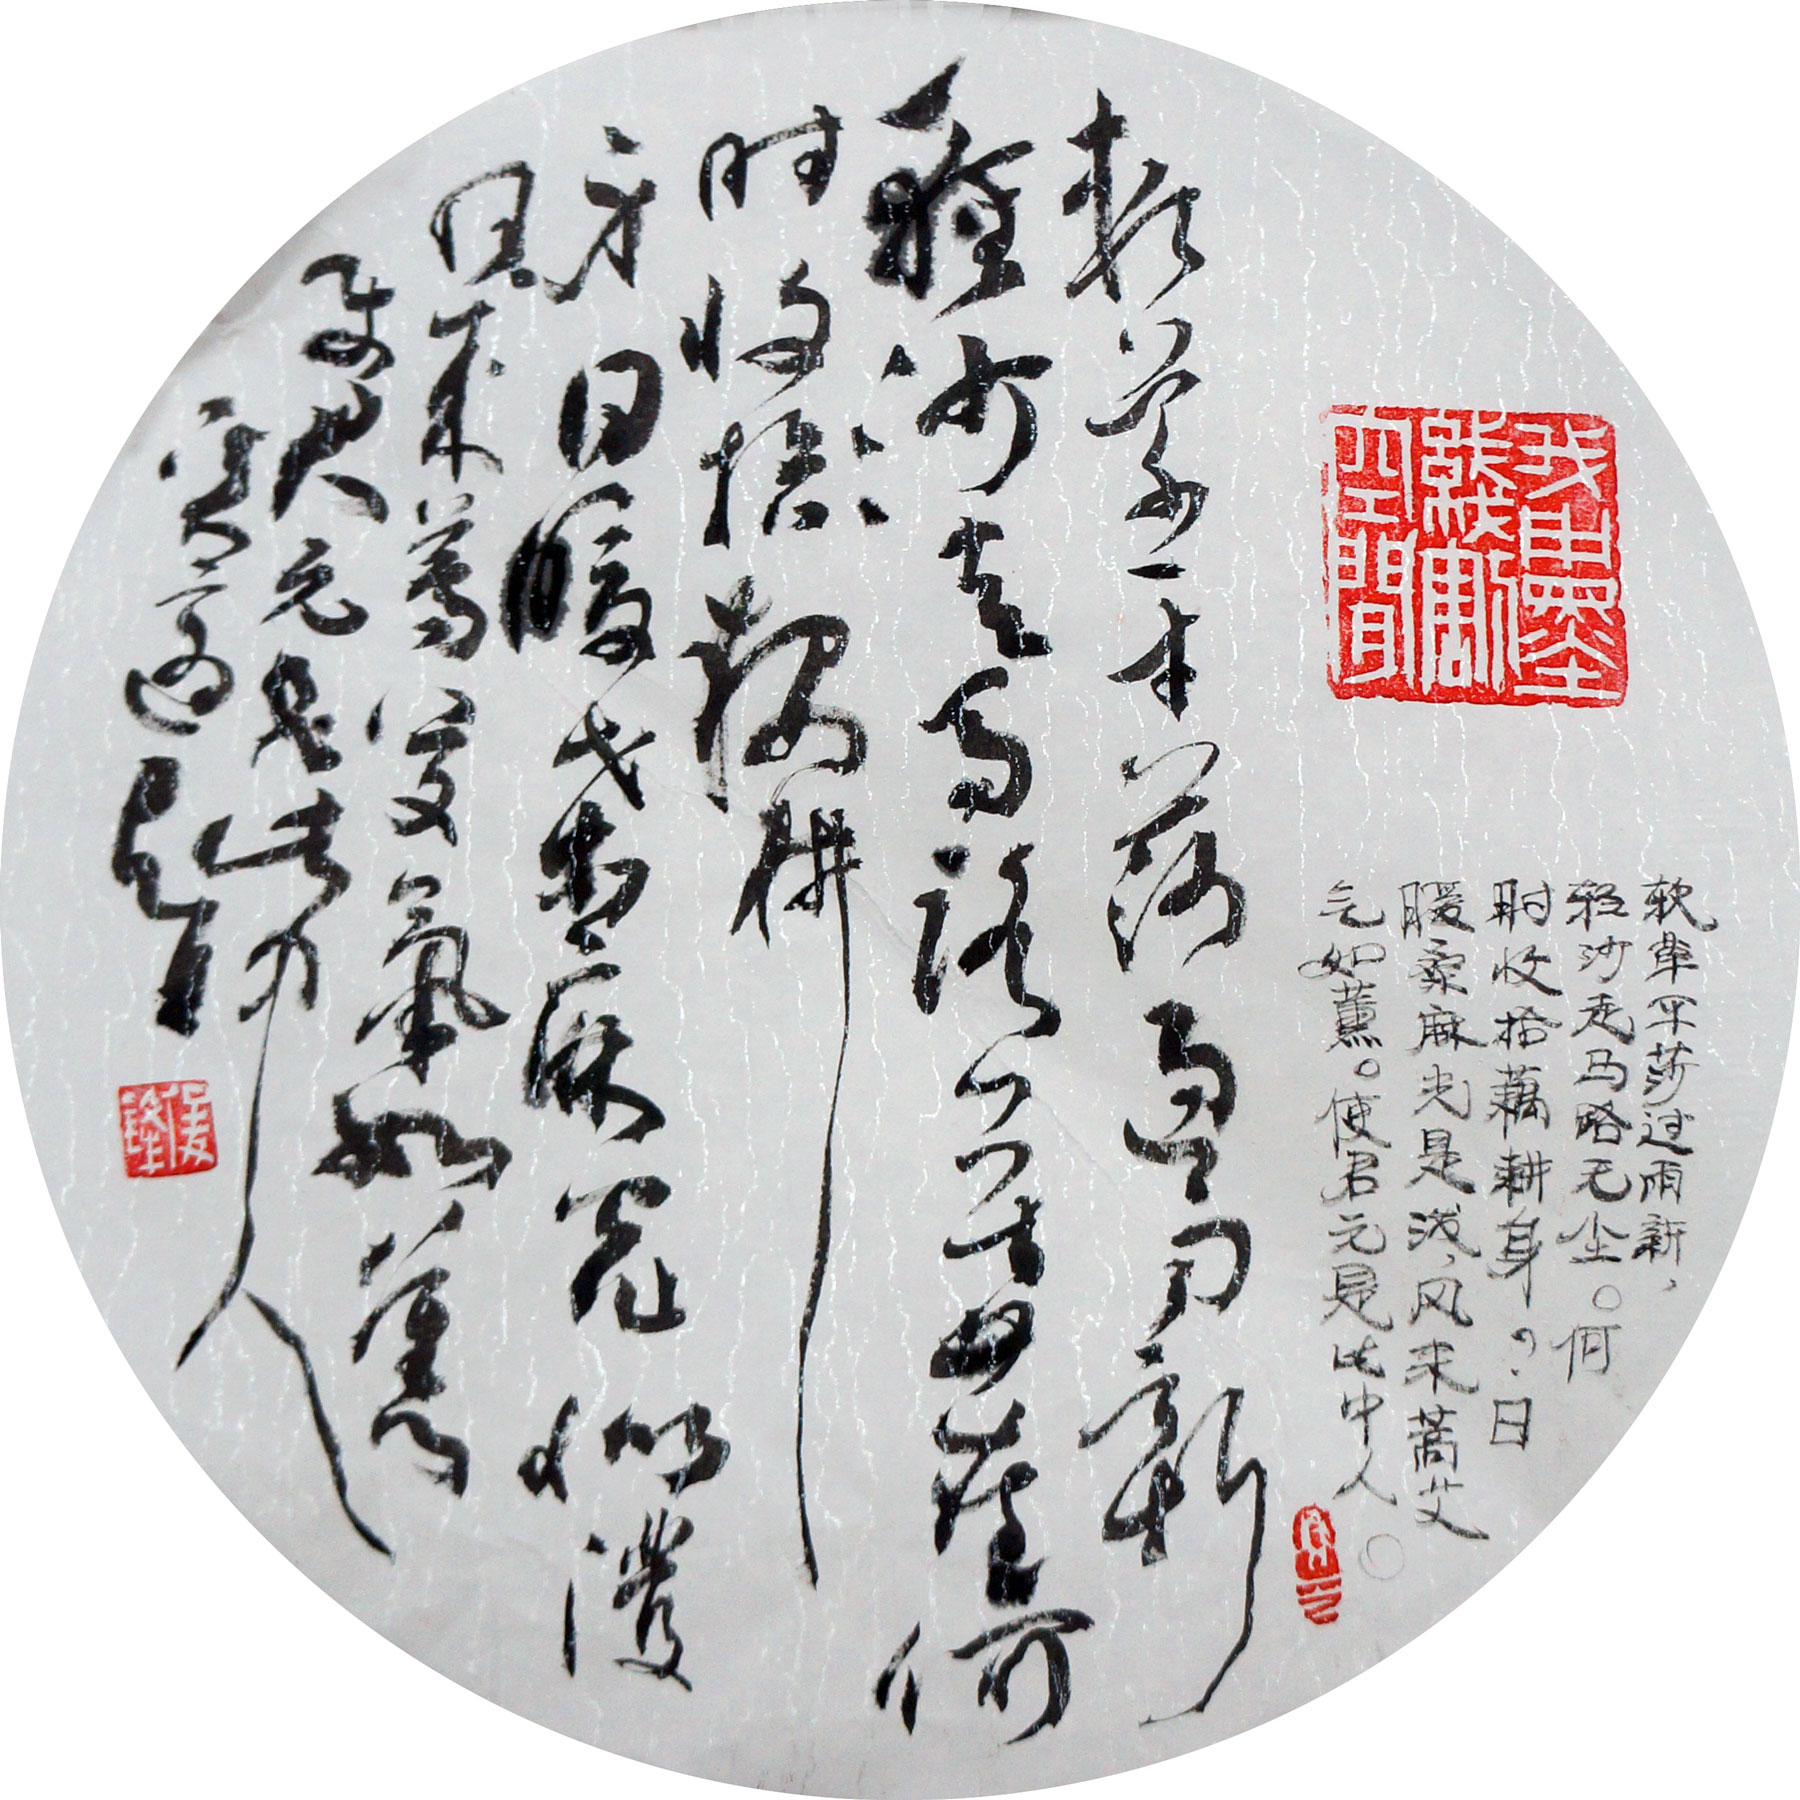 软草平莎过雨新，
轻沙走马路无尘。何
时收拾藕耕身？日
暖桑麻光是泼，风来蒿艾
气如薰。使君元是此中人。
软草平莎过雨新
轻沙走马路无尘何
时收拾耦耕
身日暖桑麻光似泼
风来蒿艾氣如薰
使君元是此中人